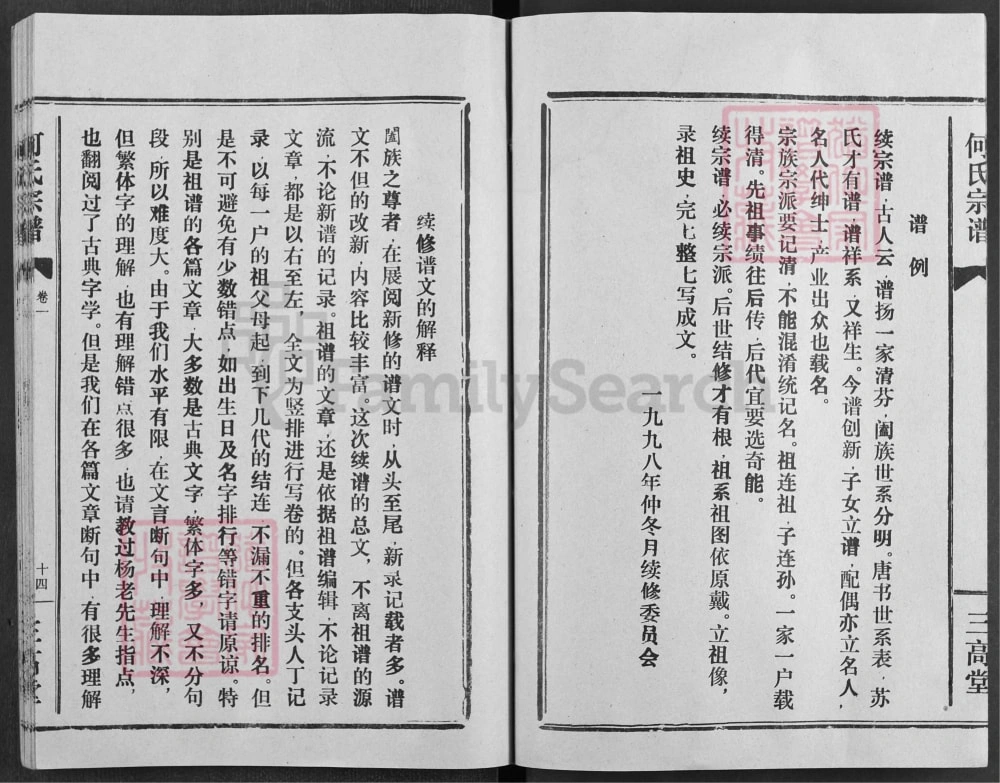 何氏宗谱
三高堂
谱例
续宗谱，古人云，谱扬一家清芬，阖族世系分明。唐书世系表，苏
氏才有谱，谱祥系，又祥生。今谱创新，子女立谱，配偶亦立名人，
名人代绅士，产业出众也载名。
宗族宗派要记清，不能混淆统记名。祖连祖，子连孙。一家一户载
得清。先祖事绩往后传，后代宜要选奇能。
续宗谱，必续宗派。后世结修才有根，祖系祖图依原戴。立祖像，
录祖史，完七整七写成文。
一九九八年仲冬月续修委员会
续修谱文的解释
阖族之尊者，在展阅新修的谱文时，从头至尾，新录记载者多。谱
文不但的改新，内容比较丰富。这次续谱的总文，不离祖谱的源
流，不论新谱的记录。祖谱的文章，还是依据祖谱编辑，不论记录
文章，都是以右至左，全文为竖排进行写卷的。但各支头人丁记
录，以每一户的祖父母起，到下几代的结连，不漏不重的排名。但
是不可避免有少数错点，如出生日及名字排行等错字请原谅。特
别是祖谱的各篇文章，大多数是古典文字，繁体字多，又不分句
段，所以难度大。由于我们水平有限，在文言断句中，理解不深，
但繁体字的理解，也有理解错点很多，也请教过杨老先生指点，
也翻阅过了古典字学。但是我们在各篇文章断句中，有很多理解
何氏宗谱
卷一
十四
三高堂
FamilySearch